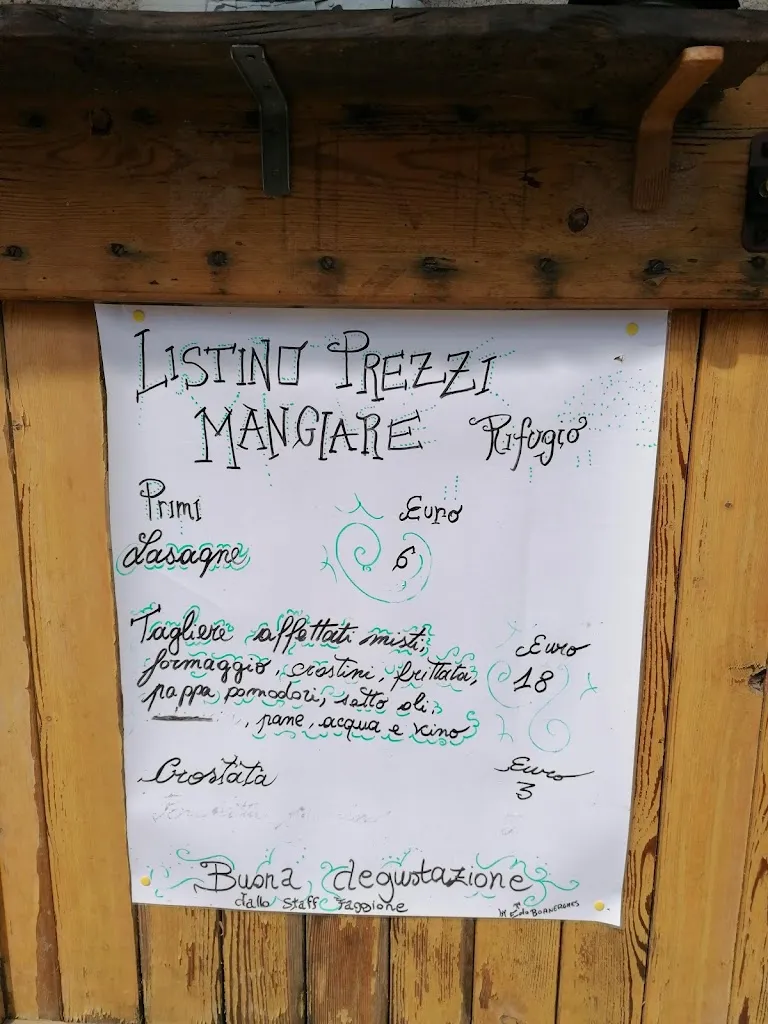 LISTINO PREZZI
MANGIARE Rifugio
Primi Euro
Lasagne 6
Tagliere affettati misti,
formaggio, crostini, frittata, Euro
pappa pomodori, sotto oli, 18
, pane, acqua e vino
Crostata Euro
3
Buona degustazione
dallo Staff Faggione
by